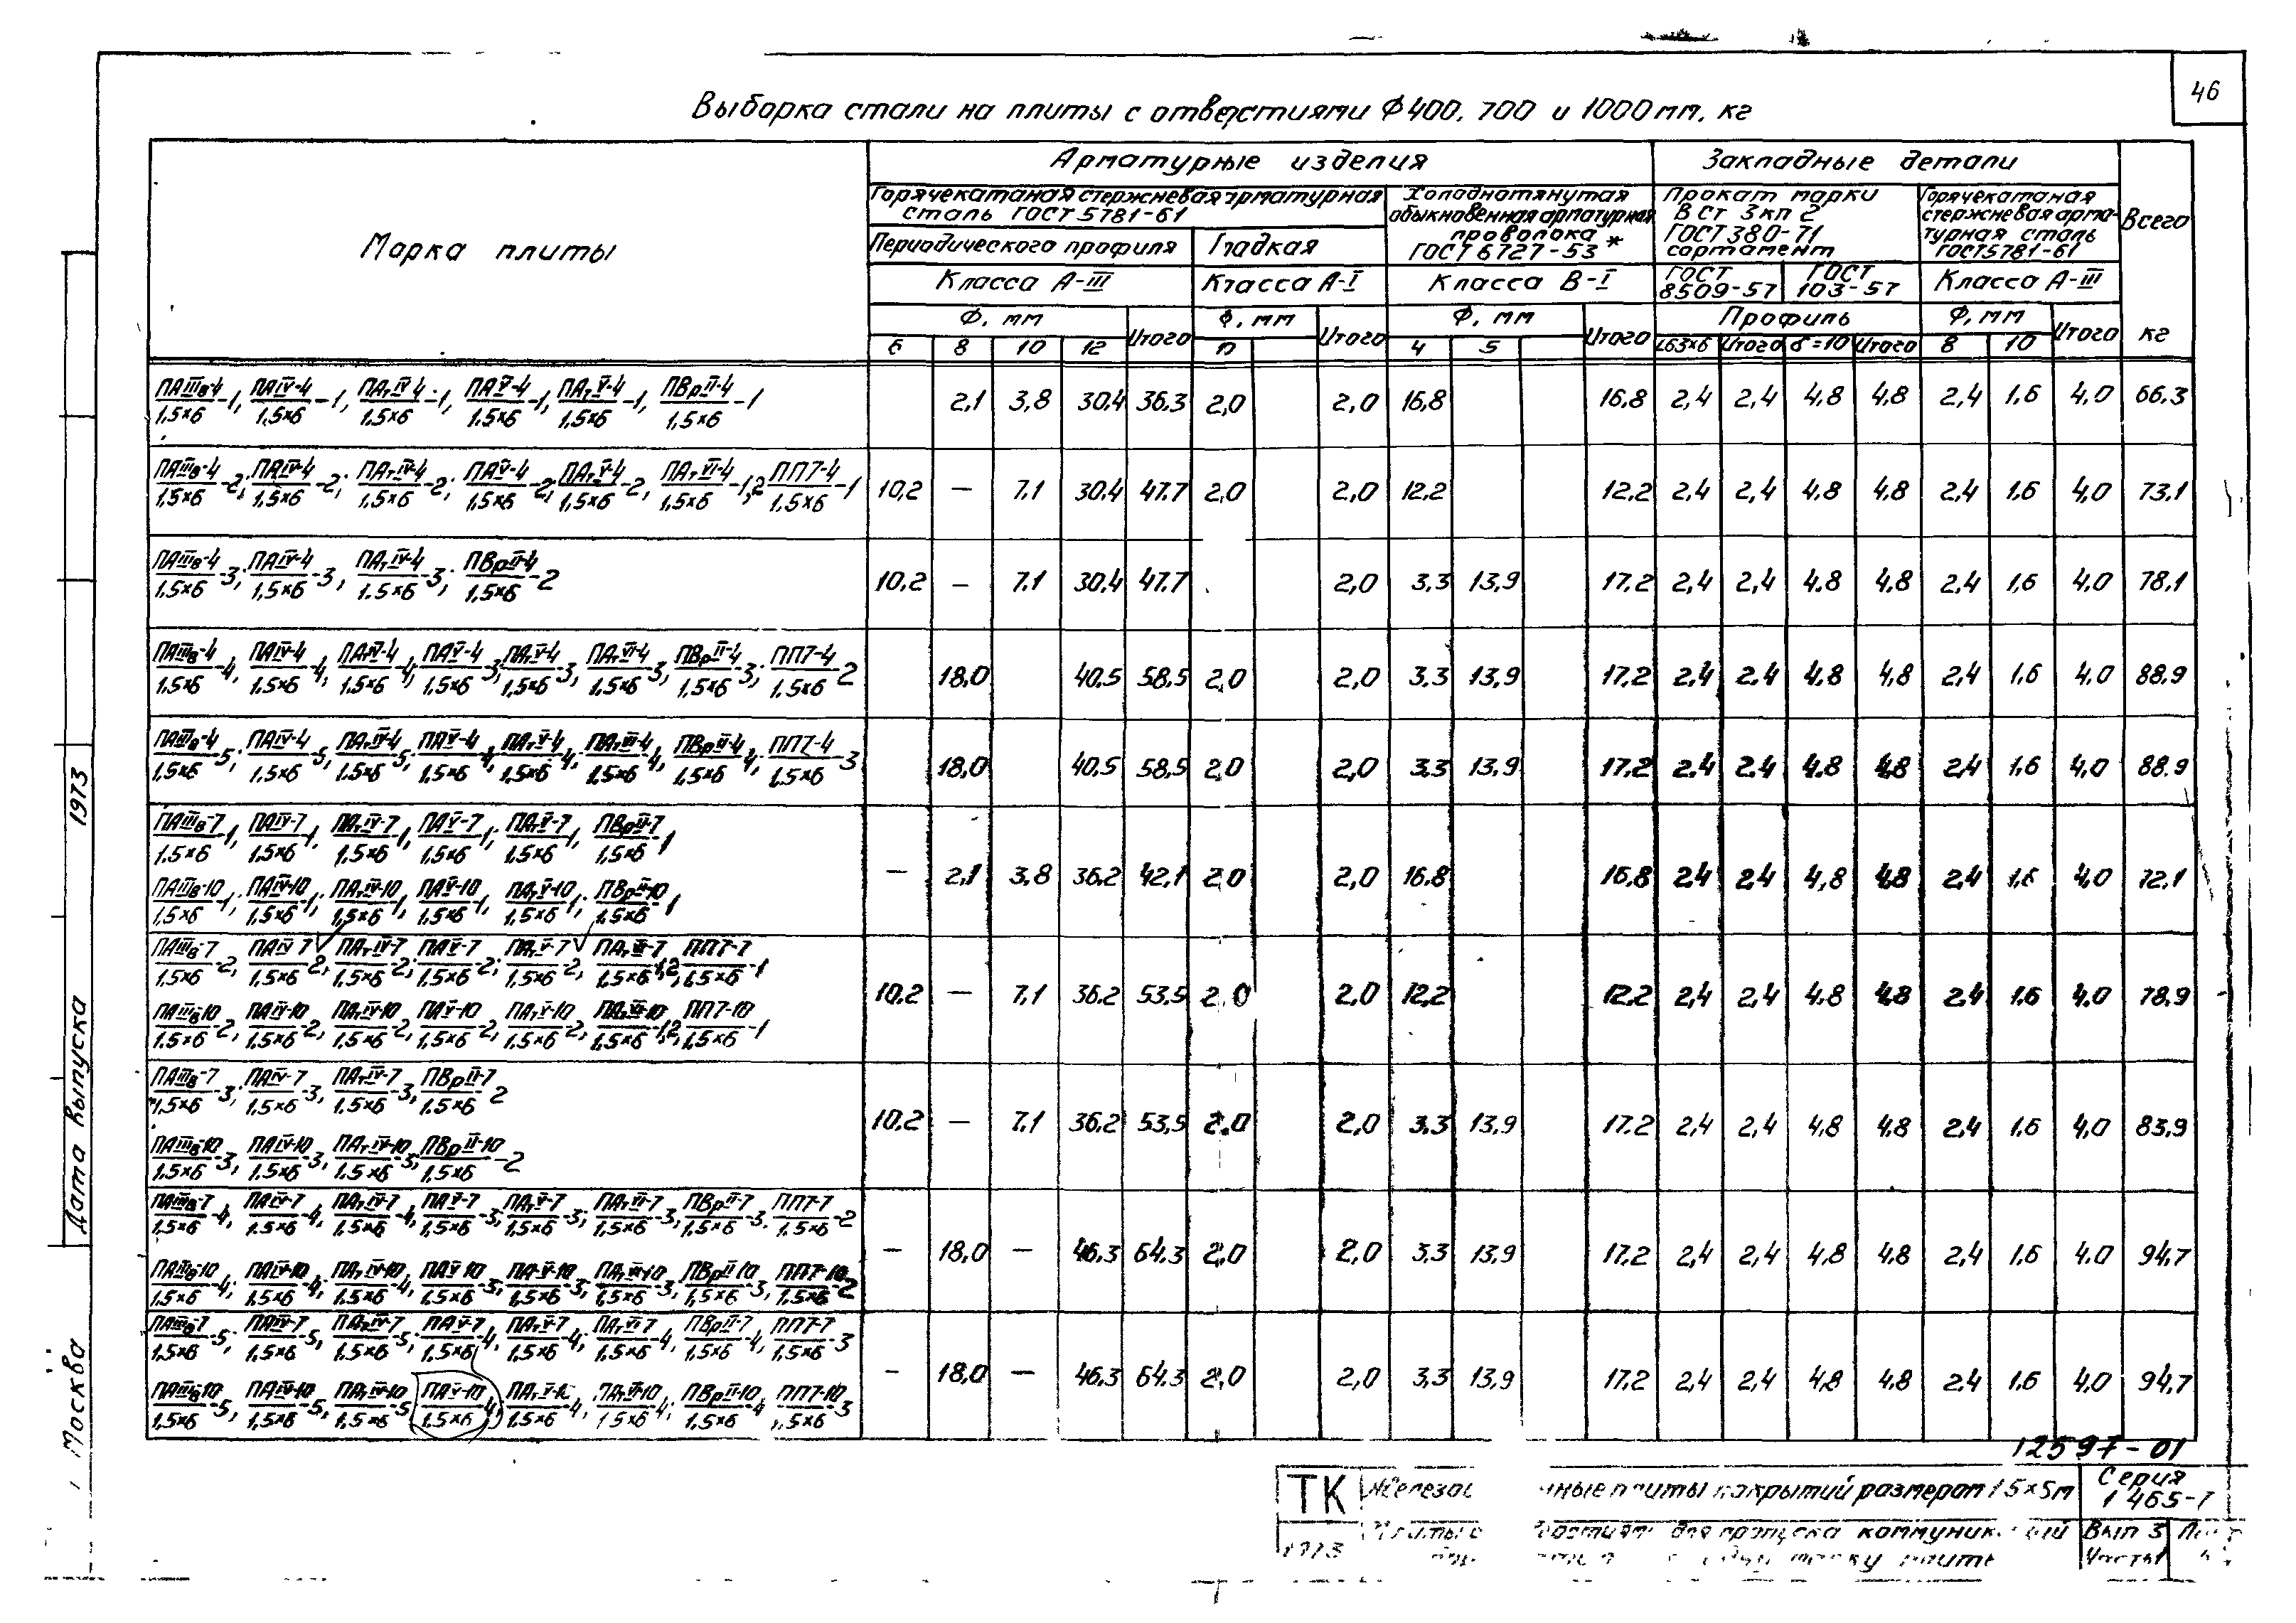 46
Выборка стали на плиты с отверстиями Ф 400, 700 и 1000 мм, кг
Марка плиты
Арматурные изделия
Закладные детали
Всего
кг
Горячекатаная стержневая арматурная
сталь ГОСТ 5781-61
Холоднотянутая
обыкновенная арматурная
проволока
ГОСТ 6727-53*
Прокат марки
В Ст 3кп 2
ГОСТ 380-71
сортамент
Горячекатаная
стержневая арма-
турная сталь
ГОСТ 5781-61
Периодического профиля
Гладкая
Класса А-III
Класса А-I
Класса В-I
ГОСТ
8509-57
ГОСТ
103-57
Класса А-III
Ф, мм Итого Ф, мм Итого Ф, мм Итого Профиль Ф, мм Итого
6 8 10 12 4 5 L63×6 Итого δ=10 Итого 8 10
ПАIIIв-4/1,5×6-1, ПАIV-4/1,5×6-1, ПАтIV-4/1,5×6-1, ПАV-4/1,5×6-1, ПАтV-4/1,5×6-1, ПВрII-4/1,5×6-1
2,1 3,8 30,4 36,3 2,0 2,0 16,8 16,8 2,4 2,4 4,8 4,8 2,4 1,6 4,0 66,3
ПАIIIв-4/1,5×6-2; ПАIV-4/1,5×6-2; ПАтIV-4/1,5×6-2; ПАV-4/1,5×6-2; ПАтV-4/1,5×6-2, ПАтVI-4/1,5×6-1,2 ПП7-4/1,5×6-1
10,2 — 7,1 30,4 47,7 2,0 2,0 12,2 12,2 2,4 2,4 4,8 4,8 2,4 1,6 4,0 73,1
ПАIIIв-4/1,5×6-3; ПАIV-4/1,5×6-3, ПАтIV-4/1,5×6-3; ПВрII-4/1,5×6-2
10,2 — 7,1 30,4 47,7 2,0 3,3 13,9 17,2 2,4 2,4 4,8 4,8 2,4 1,6 4,0 78,1
ПАIIIв-4/1,5×6-4, ПАIV-4/1,5×6-4, ПАтIV-4/1,5×6-4, ПАV-4/1,5×6-3, ПАтV-4/1,5×6-3, ПАтVI-4/1,5×6-3, ПВрII-4/1,5×6-3; ПП7-4/1,5×6-2
18,0 40,5 58,5 2,0 2,0 3,3 13,9 17,2 2,4 2,4 4,8 4,8 2,4 1,6 4,0 88,9
ПАIIIв-4/1,5×6-5; ПАIV-4/1,5×6-5, ПАтIV-4/1,5×6-5; ПАV-4/1,5×6-4, ПАтV-4/1,5×6-4, ПАтVI-4/1,5×6-4, ПВрII-4/1,5×6-4; ПП7-4/1,5×6-3
18,0 40,5 58,5 2,0 2,0 3,3 13,9 17,2 2,4 2,4 4,8 4,8 2,4 1,6 4,0 88,9
ПАIIIв-7/1,5×6-1, ПАIV-7/1,5×6-1, ПАтIV-7/1,5×6-1, ПАV-7/1,5×6-1, ПАтV-7/1,5×6-1, ПВрII-7/1,5×6-1
ПАIIIв-10/1,5×6-1, ПАIV-10/1,5×6-1, ПАтIV-10/1,5×6-1, ПАV-10/1,5×6-1, ПАтV-10/1,5×6-1, ПВрII-10/1,5×6-1
— 2,1 3,8 36,2 42,1 2,0 2,0 16,8 16,8 2,4 2,4 4,8 4,8 2,4 1,6 4,0 72,1
ПАIIIв-7/1,5×6-2, ПАIV-7/1,5×6-2, ПАтIV-7/1,5×6-2, ПАV-7/1,5×6-2, ПАтV-7/1,5×6-2, ПАтVI-7/1,5×6-1,2, ПП7-7/1,5×6-1
ПАIIIв-10/1,5×6-2, ПАIV-10/1,5×6-2, ПАтIV-10/1,5×6-2, ПАV-10/1,5×6-2, ПАтV-10/1,5×6-2, ПАтVI-10/1,5×6-1,2, ПП7-10/1,5×6-1
10,2 — 7,1 36,2 53,5 2,0 2,0 12,2 12,2 2,4 2,4 4,8 4,8 2,4 1,6 4,0 78,9
ПАIIIв-7/1,5×6-3, ПАIV-7/1,5×6-3, ПАтIV-7/1,5×6-3, ПВрII-7/1,5×6-2
ПАIIIв-10/1,5×6-3, ПАIV-10/1,5×6-3, ПАтIV-10/1,5×6-3, ПВрII-10/1,5×6-2
10,2 — 7,1 36,2 53,5 2,0 2,0 3,3 13,9 17,2 2,4 2,4 4,8 4,8 2,4 1,6 4,0 83,9
ПАIIIв-7/1,5×6-4, ПАIV-7/1,5×6-4, ПАтIV-7/1,5×6-4, ПАV-7/1,5×6-3, ПАтV-7/1,5×6-3, ПАтVI-7/1,5×6-3, ПВрII-7/1,5×6-3, ПП7-7/1,5×6-2
ПАIIIв-10/1,5×6-4, ПАIV-10/1,5×6-4, ПАтIV-10/1,5×6-4, ПАV-10/1,5×6-3, ПАтV-10/1,5×6-3, ПАтVI-10/1,5×6-3, ПВрII-10/1,5×6-3, ПП7-10/1,5×6-2
— 18,0 — 46,3 64,3 2,0 2,0 3,3 13,9 17,2 2,4 2,4 4,8 4,8 2,4 1,6 4,0 94,7
ПАIIIв-7/1,5×6-5; ПАIV-7/1,5×6-5, ПАтIV-7/1,5×6-5; ПАV-7/1,5×6-4, ПАтV-7/1,5×6-4, ПАтVI-7/1,5×6-4, ПВрII-7/1,5×6-4, ПП7-7/1,5×6-3
ПАIIIв-10/1,5×6-5, ПАIV-10/1,5×6-5, ПАтIV-10/1,5×6-5, ПАV-10/1,5×6-4, ПАтV-10/1,5×6-4, ПАтVI-10/1,5×6-4, ПВрII-10/1,5×6-4 ПП7-10/1,5×6-3
— 18,0 — 46,3 64,3 2,0 2,0 3,3 13,9 17,2 2,4 2,4 4,8 4,8 2,4 1,6 4,0 94,7
12597-01
ТК
1973
плиты покрытий размером
Серия
1 465-7
для пропуска
Вып 3
Часть 1
Москва
Дата выпуска 1973